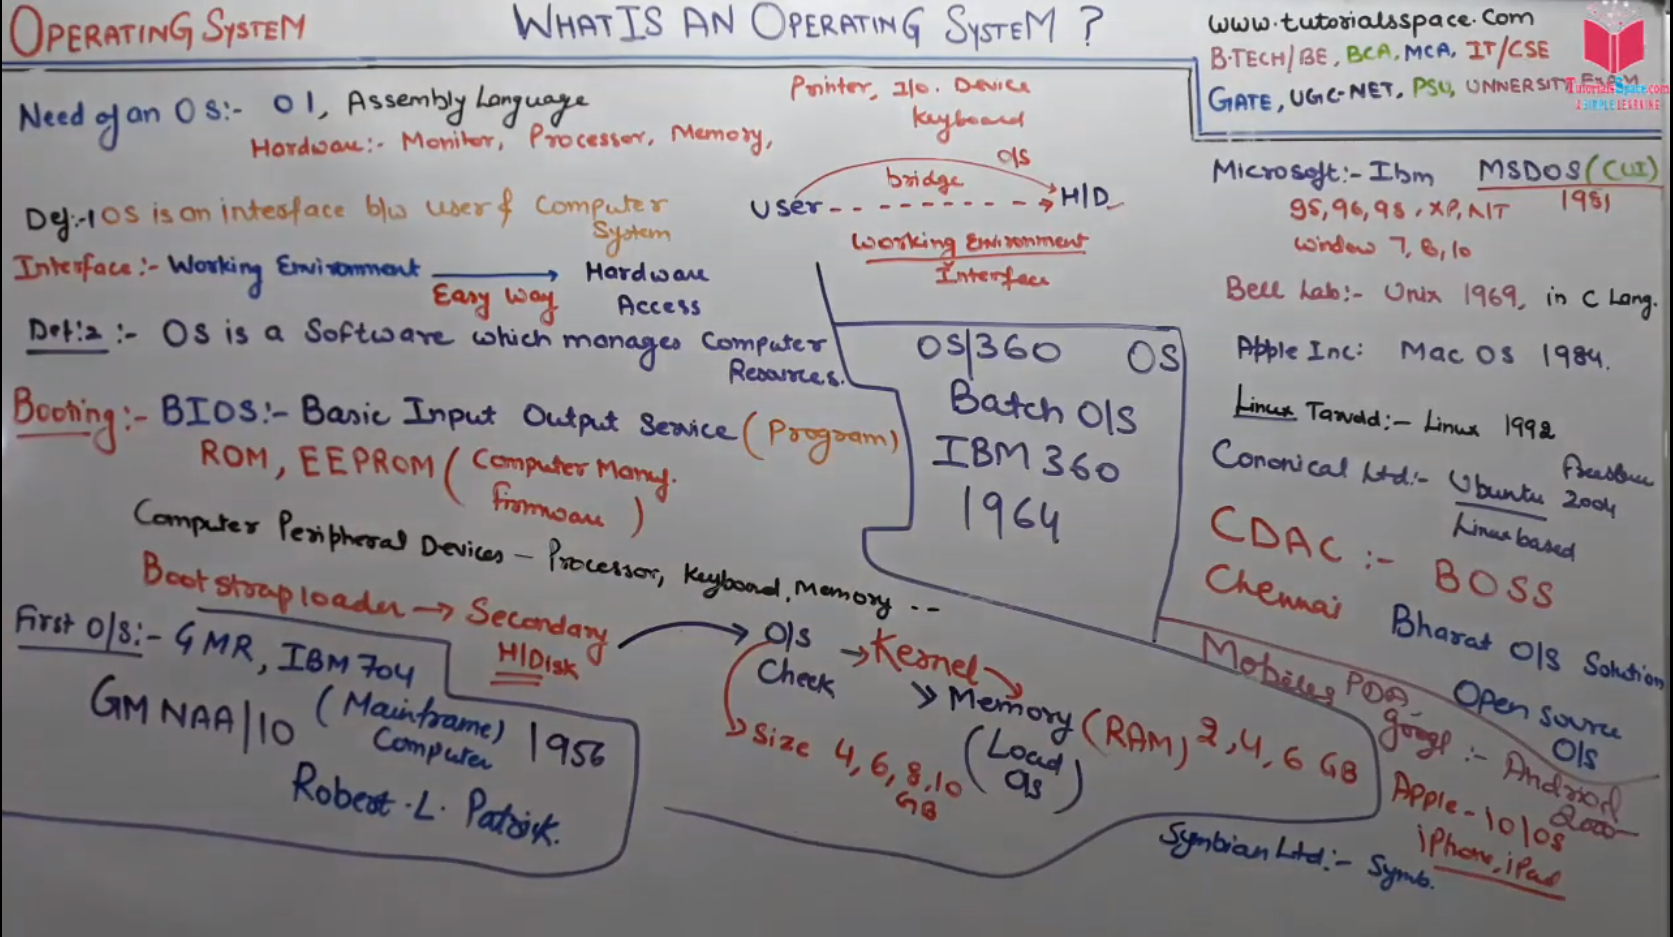 OPERATING SYSTEM
WHAT IS AN OPERATING SYSTEM ?
www.tutorialsspace.com
B.TECH/BE, BCA, MCA, IT/CSE
GATE, UGC-NET, PSU, UNIVERSITY EXAM
TutorialsSpace.com
A SIMPLE LEARNING
Need of an OS:- 01, Assembly Language
Hardware:- Monitor, Processor, Memory,
Printer, I/O. Device
Keyboard
Def:-1 OS is an interface b/w user & Computer
System
Interface:- Working Environment → Hardware
Easy Way Access
Def:2 :- OS is a Software which manages Computer
Resources.
O/S
bridge
User - - - - - → H/D
Working Environment
Interface
Booting:- BIOS:- Basic Input Output Service (Program)
ROM, EEPROM (Computer Manuf.
firmware)
Computer Peripheral Devices – Processor, Keyboard, Memory --
Bootstrap loader → Secondary
H/Disk
O/S
Check
→ Kernel
→ Memory (RAM, 2, 4, 6 GB
(Load
OS)
Size 4, 6, 8, 10
GB
First O/S:- GMR, IBM 704
GM NAA/10 (Mainframe)
Computer
1956
Robert . L. Patrick.
OS/360 OS
Batch O/S
IBM 360
1964
Microsoft:- Ibm MSDOS (CUI)
1981
95, 96, 98, XP, NT
window 7, 8, 10
Bell Lab:- Unix 1969, in C Lang.
Apple Inc: Mac OS 1984.
Linux Tarvald:- Linux 1992
Cononical Ltd:- Ubuntu 2004
Linux based
CDAC :- BOSS
Chennai
Bharat O/S Solution
Open Source
O/S
Mobiles PDA-
googl :- Android
2000
Apple - IO/OS
iPhone, iPad
Symbian Ltd:- Symb.